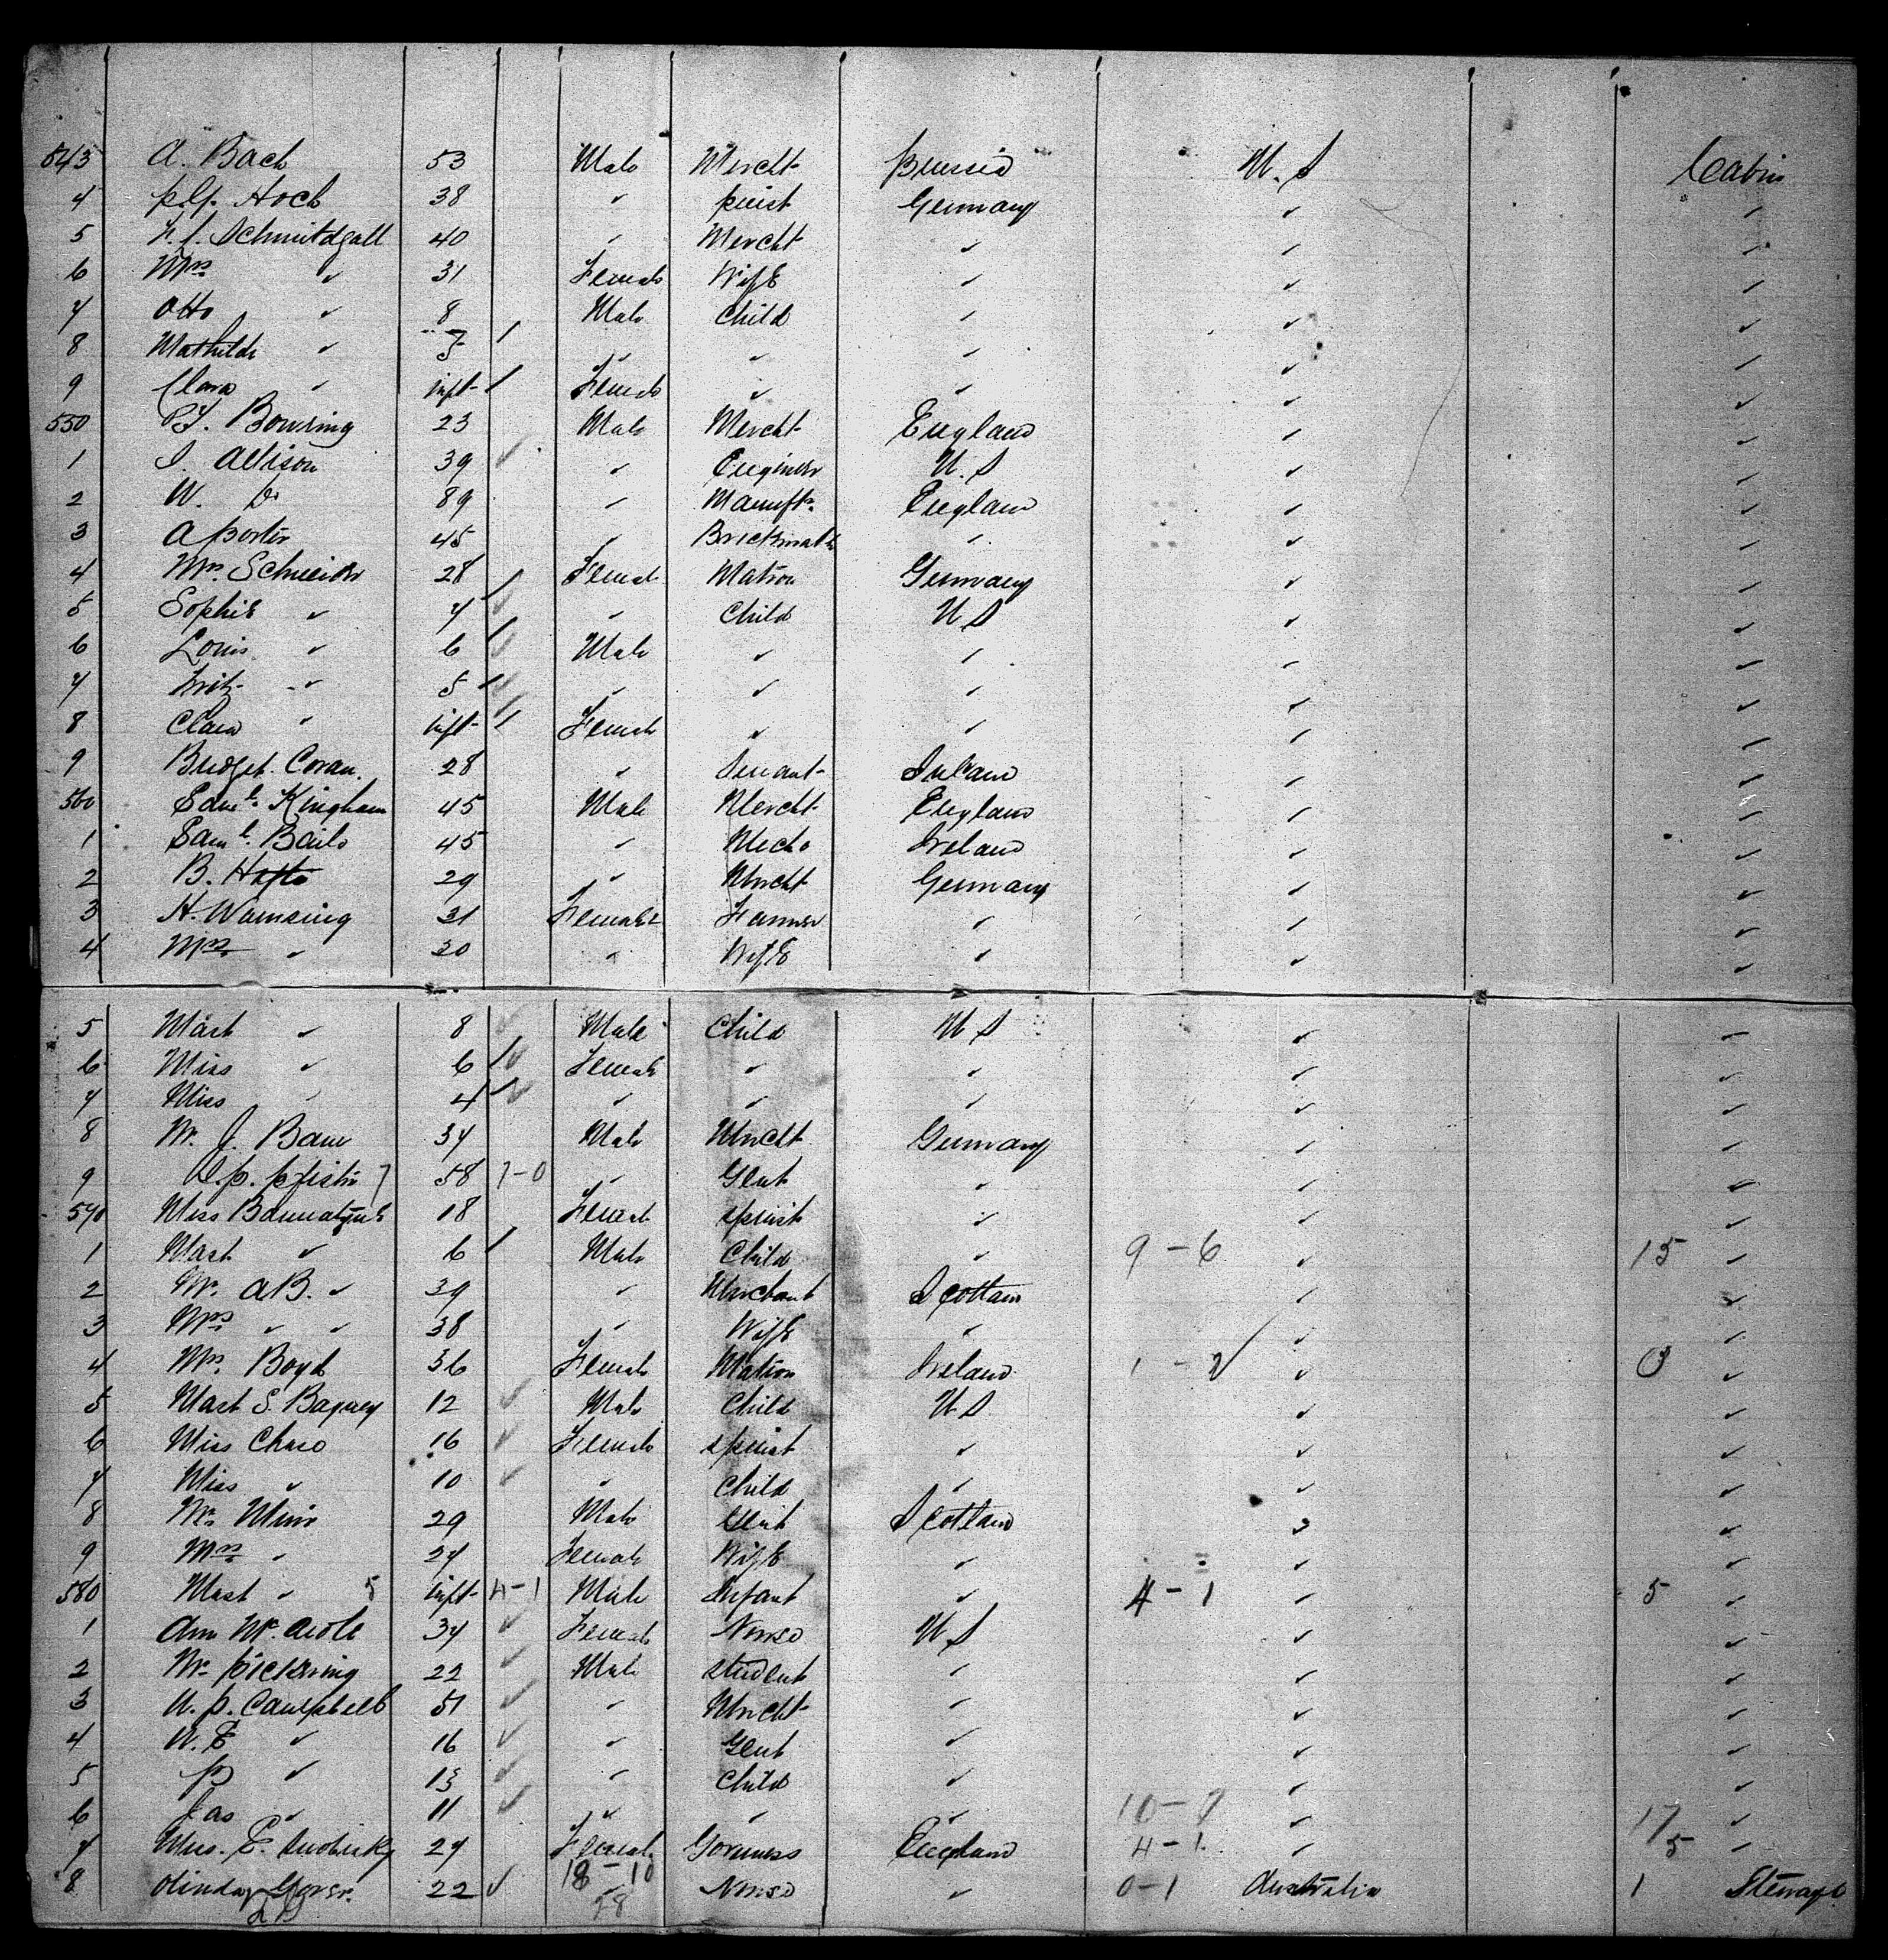 543 A. Bach 53 Male Mercht Prussia U.S Cabin
4 Hoch 38 " Germany " "
5 Schmidgall 40 " Mercht " " "
6 Mrs " 31 Female Wife " " "
7 Otto " 8 Male Child " " "
8 Mathilde " 5 " " " " "
9 Clara " inft Female " " " "
550 Bowring 23 Male Mercht England " "
1 Allison 39 " Engineer U.S " "
2 W. Do 89 " Manuftr England " "
3 A Porter 45 " " " "
4 Mrs. Schneider 28 Female Matron Germany " "
5 Sophie " 7 " Child U S " "
6 Louis " 6 Male " " " "
7 Fritz " 5 " " " " "
8 Clara " inft Female " " " "
9 Bridget Coran. 28 " Servant Ireland " "
560 Saml. Kingham 45 Male Mercht England " "
1 Saml. Baile 45 " Mecha Ireland " "
2 B. 29 " Mercht Germany " "
3 H. Wamsing 31 Female Farmer " " "
4 Mrs " 30 " Wife " " "
5 Mast " 8 Male Child U S " "
6 Miss " 6 Female " " " "
7 Miss " 4 " " " " "
8 Mr. J. Bam 37 Male Mercht Germany " "
9 7 58 7-0 " Gent " " "
570 Miss Bannatyne 18 Female Spinst " " "
1 Mast " 6 Male Child " 9-6 " 15 "
2 Mr. A B. " 39 " Merchant Scotland " "
3 Mrs " " 38 " Wife " " "
4 Mrs Boyd 36 Female Matron Ireland 1-2 " 3 "
5 Mast S. Bagney 12 Male Child U S " "
6 Miss Chase 16 Female Spinst " " "
7 Miss " 10 " Child " " "
8 Mr Muir 29 Male Gent Scotland " "
9 Mrs " 27 Female Wife " " "
580 Mast " 5 inft 4-1 Male Infant " 4-1 " 5 "
1 Ann 37 Female Nurse U S " "
2 Mr Pickering 22 Male Student " " "
3 W. P. Campbell 51 " Mercht " " "
4 W. E " 16 " Gent " " "
5 P " 13 " Child " " "
6 Jas " 11 " " " 10-7 " 17 "
7 Miss. E. 27 Female Governess England 4-1 " 5 "
8 Olinda 22 18-10 " Nurse " 0-1 Australia 1 Steerage
28